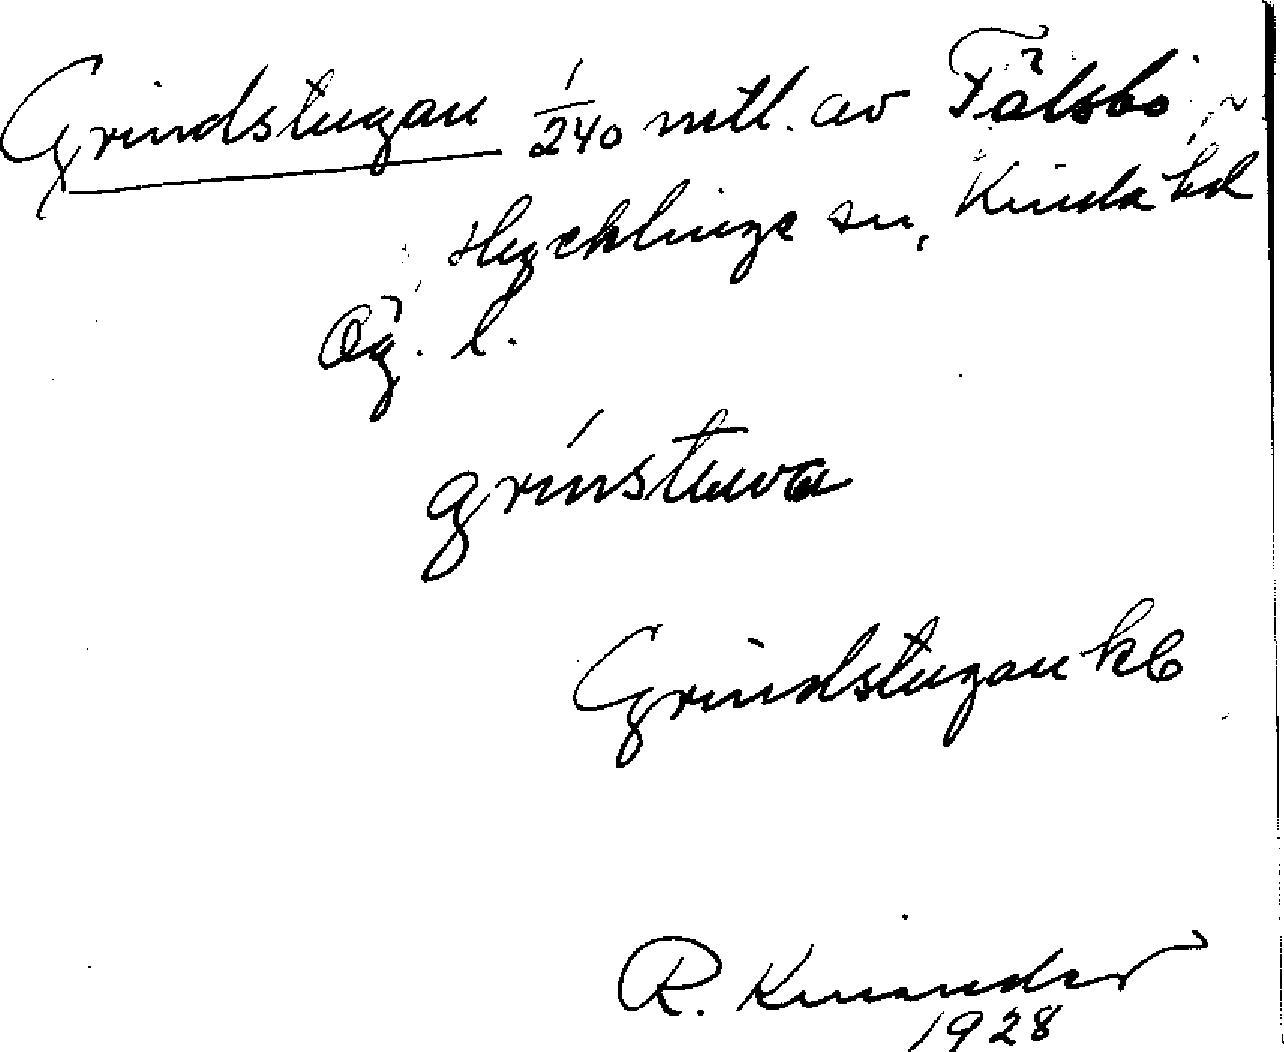 Grindstugan 1/240 mtl. av Fålsbo
Hycklinge sn, Kinda hd
Ög. l.
grinstuwa
Grindstugan kb
R. Kinander
1928